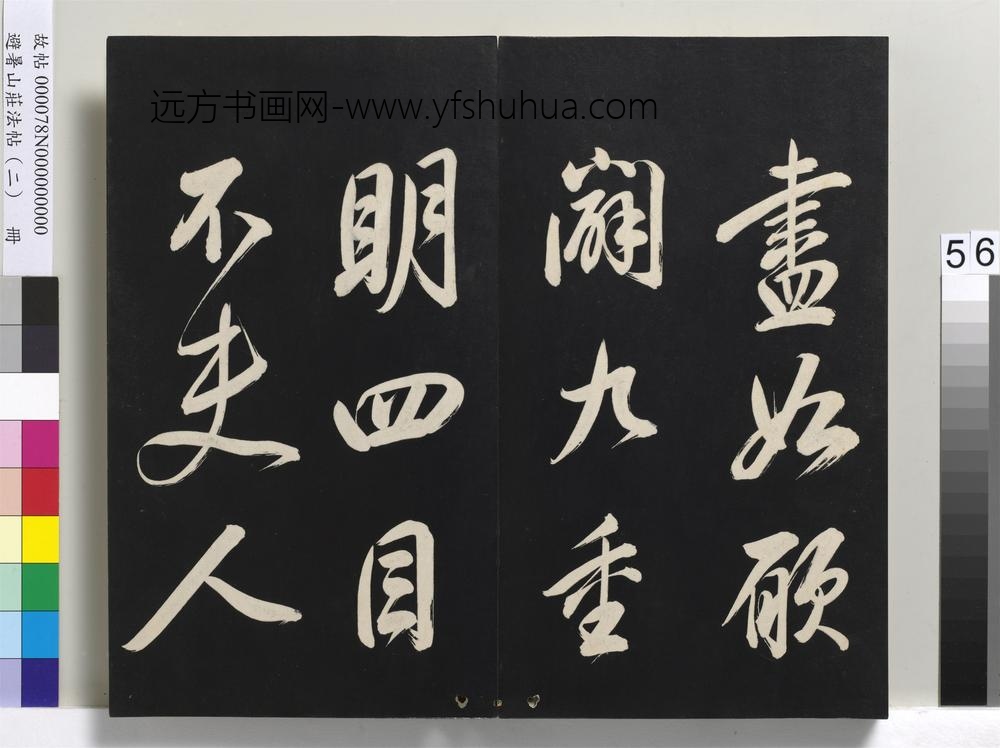 故帖 000078N000000000
避暑山莊法帖（二） 冊
远方书画网-www.yfshuhua.com
56
盡始願
闢九重
明四目
不失人